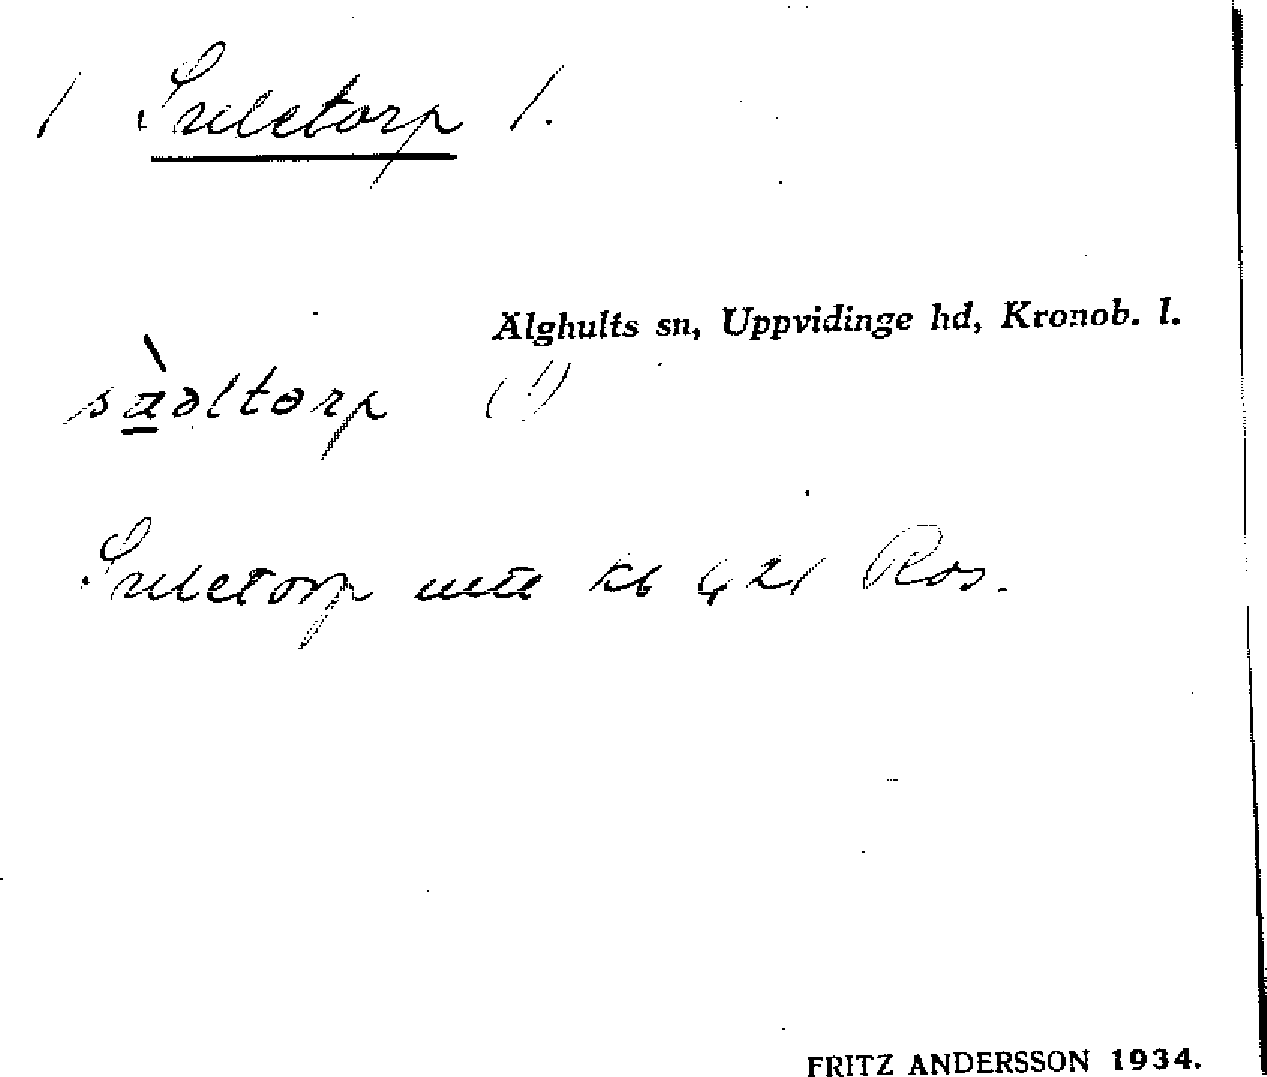 / Suletorp /.
Älghults sn, Uppvidinge hd, Kronob. l.
sàəltorp (!)
Suletorp kb 421 Ros.
FRITZ ANDERSSON 1934.